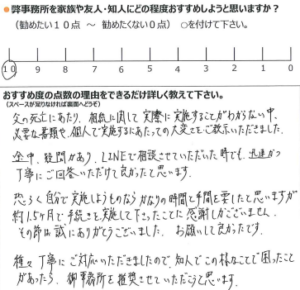 ●弊事務所を家族や友人・知人にどの程度おすすめしようと思いますか?
(勧めたい10点 ~ 勧めたくない0点) ○を付けて下さい。
10 9 8 7 6 5 4 3 2 1 0
おすすめ度の点数の理由をできるだけ詳しく教えて下さい。
(スペースが足りなければ裏面へどうぞ)
父の死亡にあたり、相続に関して実際に実施することがわからない中、
必要な書類や個人で実施するにあたっての大変さをご教示いただきました。
途中、疑問があり、LINEで相談させていただいた時でも、迅速かつ
丁寧にご回答いただけて良かったと思います。
恐らく自分で実施しようものならかなりの時間と手間を要したと思いますが
約1.5ヶ月で手続きを実施して下さったことに感謝しかございません。
その節は誠にありがとうございました。お願いして良かったです。
種々丁寧にご対応いただきましたので、知人でこの様なことで困ったこと
があったら、御事務所を推奨させていただこうと思います。